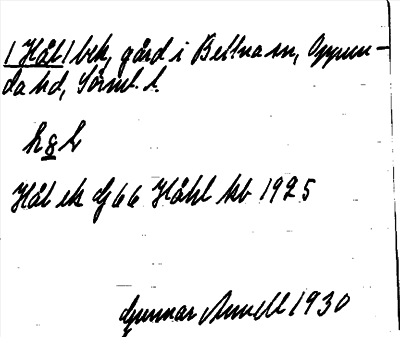 / Hål / bek, gård i Bettna sn, Oppun-
da hd, Sörml. l.
h8l
Hål ek dj 66 Håhl kb 1925
Gunnar Arnell 1930